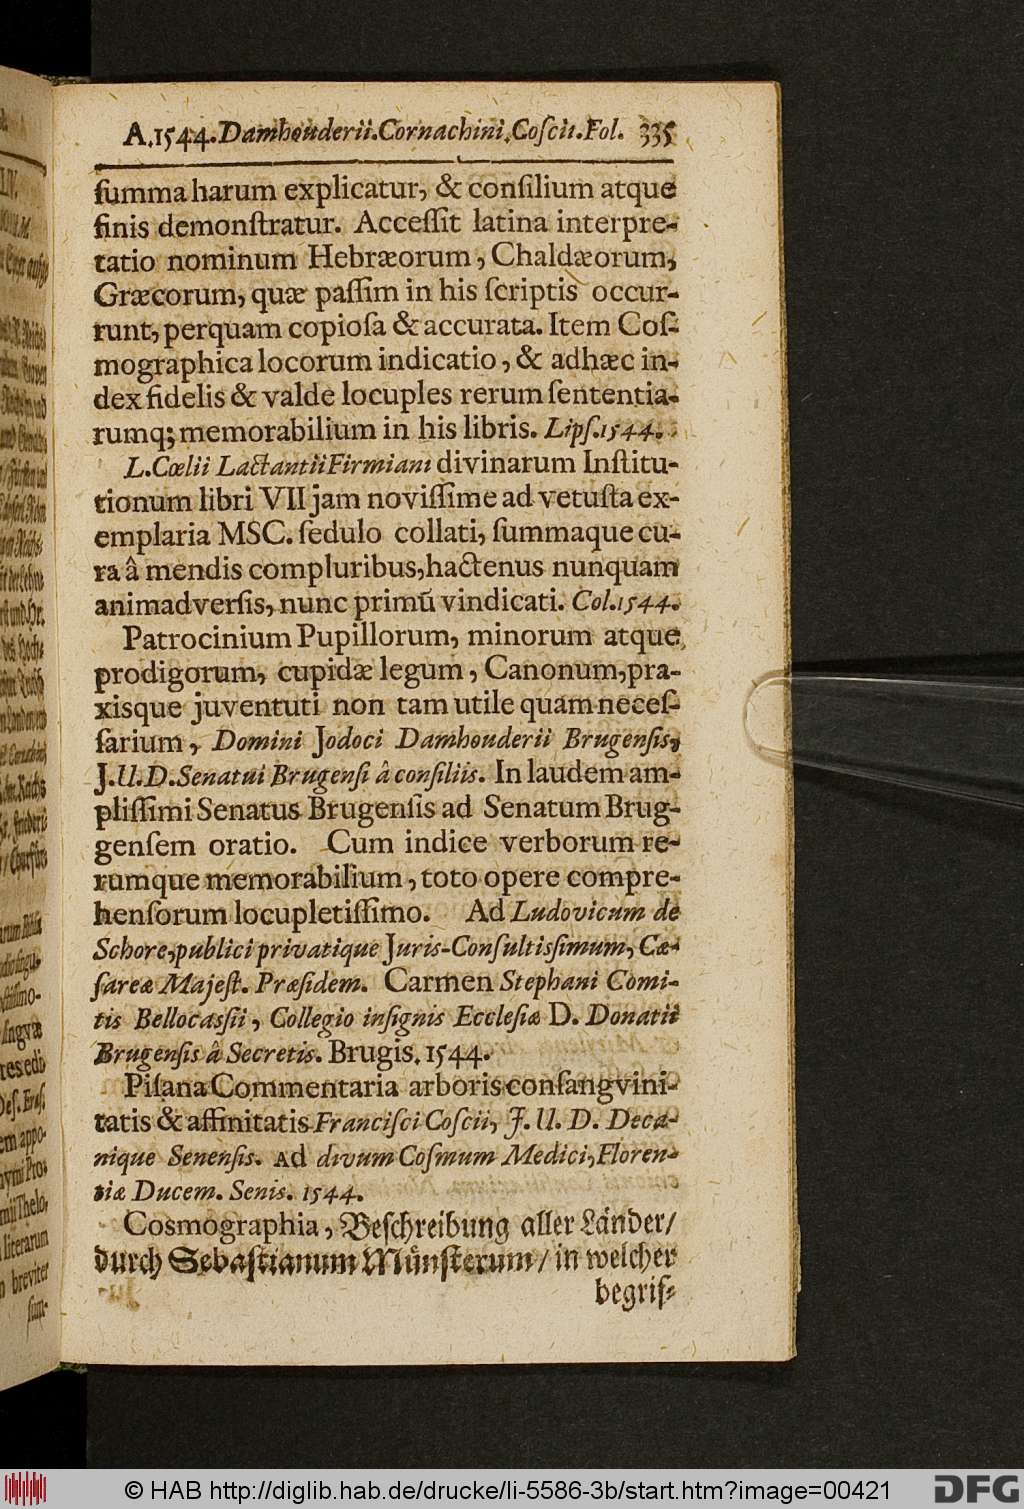 A.1544.Damhouderii.Cornachini.Coſcii.Fol. 335
ſumma harum explicatur, & conſilium atque
finis demonſtratur. Acceſſit latina interpre-
tatio nominum Hebræorum, Chaldæorum,
Græcorum, quæ paſſim in his ſcriptis occur-
runt, perquam copioſa & accurata. Item Coſ-
mographica locorum indicatio, & adhæc in-
dex fidelis & valde locuples rerum ſententia-
rumq; memorabilium in his libris. Lipſ.1544.
L.Cœlii Lactantii Firmiani divinarum Inſtitu-
tionum libri VII jam noviſſime ad vetuſta ex-
emplaria MSC. ſedulo collati, ſummaque cu-
ra â mendis compluribus, hactenus nunquam
animadverſis, nunc primū vindicati. Col.1544.
Patrocinium Pupillorum, minorum atque
prodigorum, cupidæ legum, Canonum, pra-
xisque juventuti non tam utile quam neceſ-
ſarium, Domini Jodoci Damhouderii Brugenſis,
J.U.D.Senatui Brugenſi â conſiliis. In laudem am-
pliſſimi Senatus Brugenſis ad Senatum Brug-
genſem oratio. Cum indice verborum re-
rumque memorabilium, toto opere compre-
henſorum locupletiſſimo. Ad Ludovicum de
Schore, publici privatique Juris-Conſultisſimum, Cæ-
ſareæ Majeſt. Præſidem. Carmen Stephani Comi-
tis Bellocasſii, Collegio inſignis Eccleſiæ D. Donatii
Brugenſis â Secretis. Brugis. 1544.
Piſana Commentaria arboris conſangvini-
tatis & affinitatis Franciſci Coſcii, J. U. D. Deca-
nique Senenſis. Ad divum Coſmum Medici, Floren-
tiæ Ducem. Senis. 1544.
Cosmographia, Beſchreibung aller Länder/
durch Sebaſtianum Münſterum/ in welcher
begriſ-
© HAB http://diglib.hab.de/drucke/li-5586-3b/start.htm?image=00421
DFG